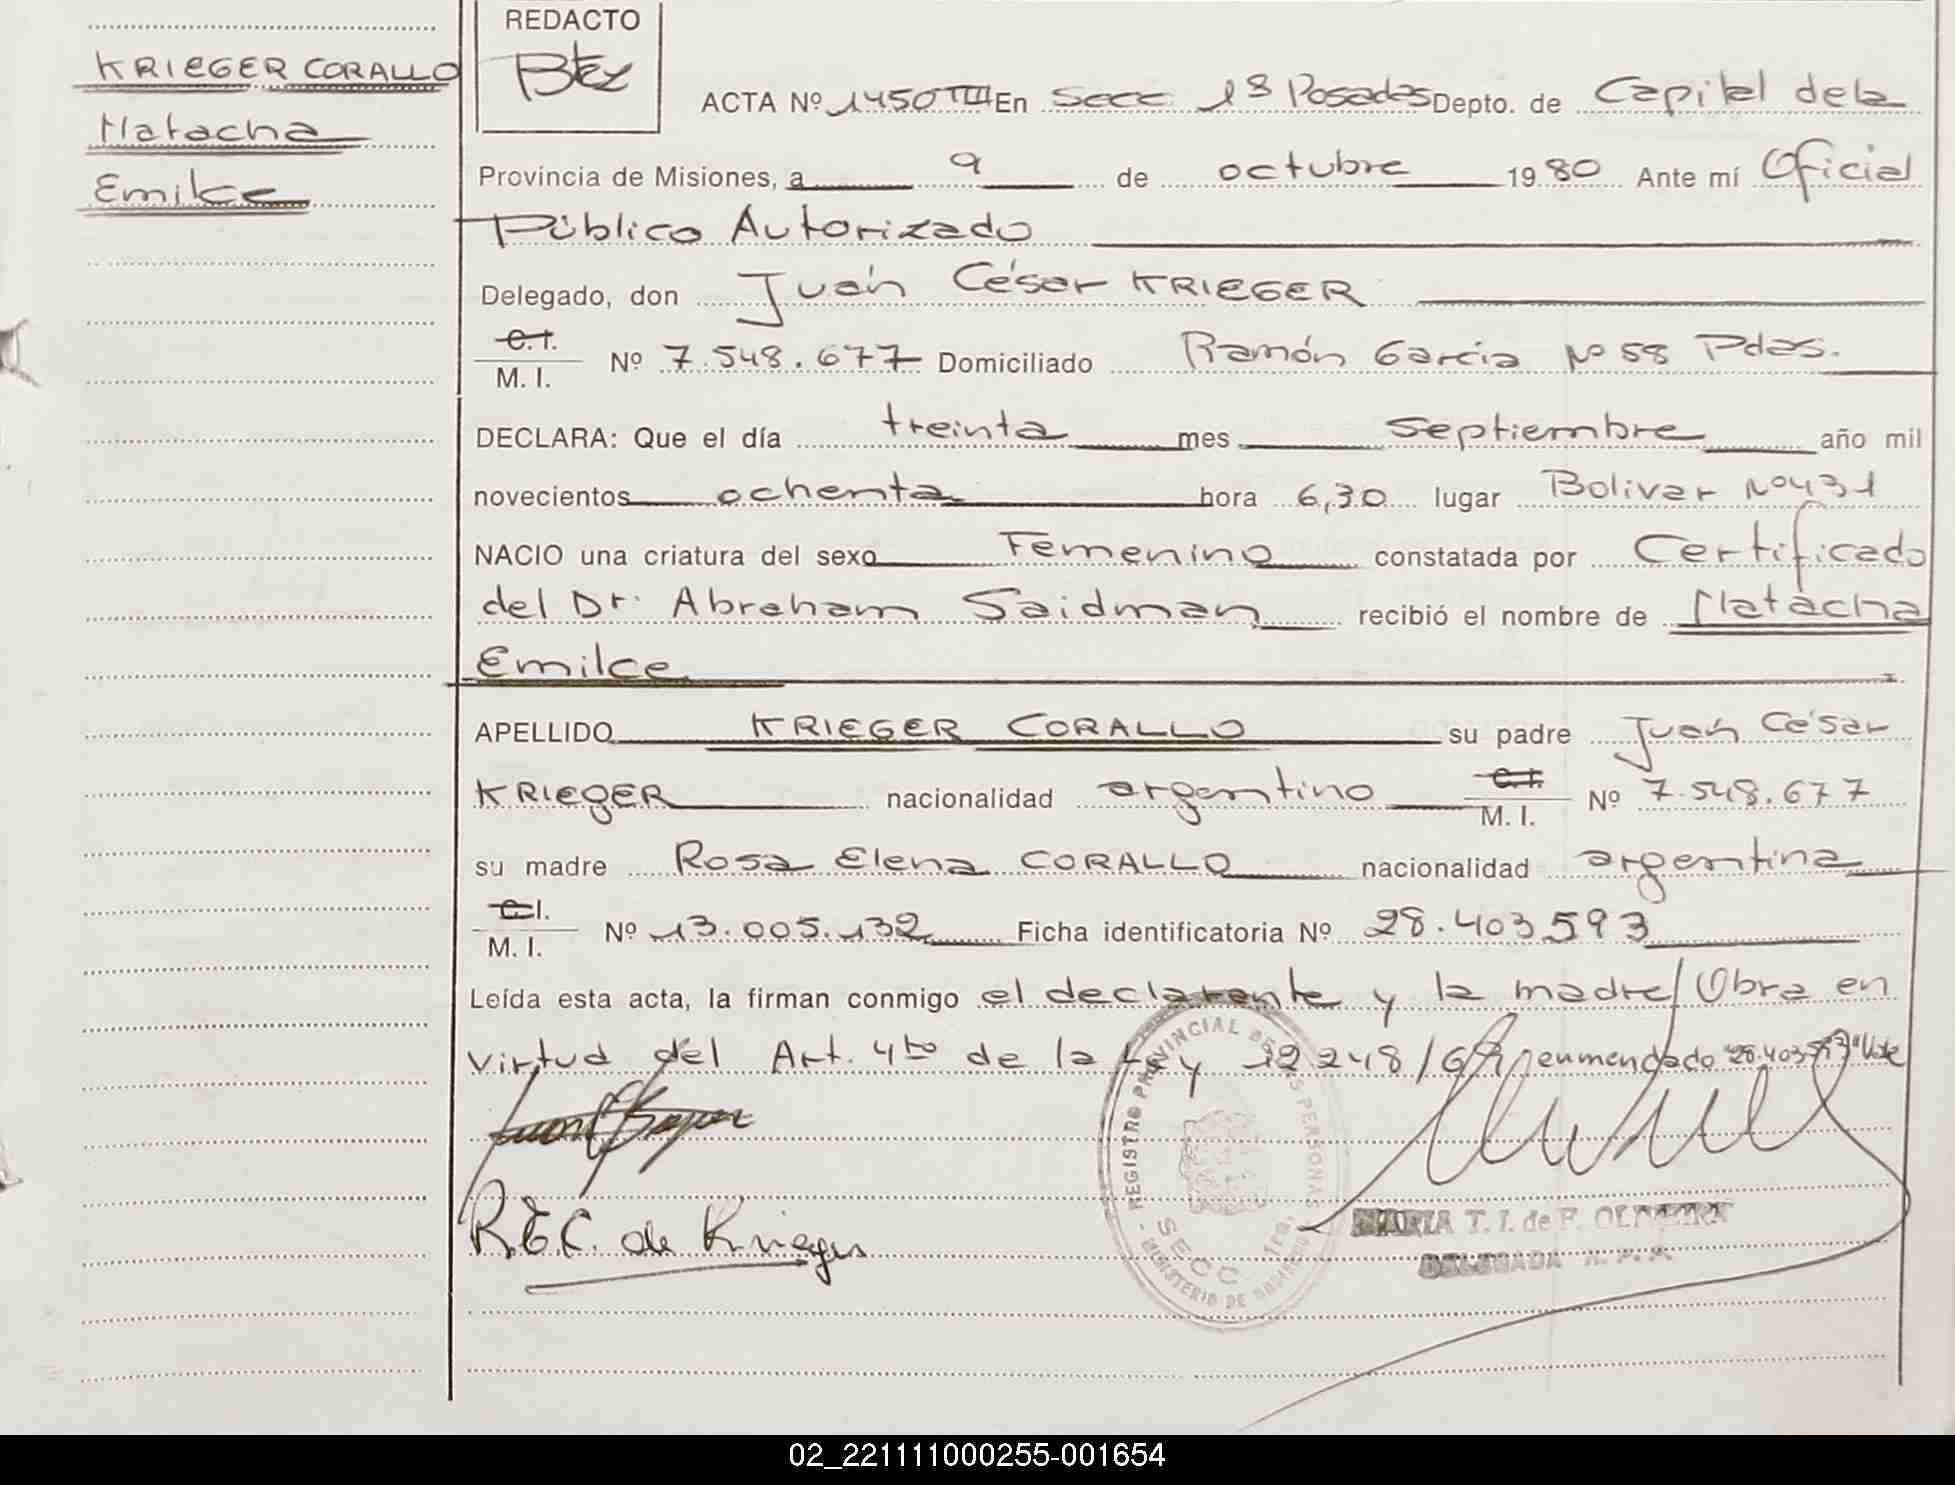 REDACTO
KRIEGER CORALLO
Natacha
Emilce
ACTA Nº 1450 TIII En Secc 1ª Posadas Depto. de Capital de la
Provincia de Misiones, a 9 de octubre 1980 Ante mí Oficial
Público Autorizado
Delegado, don Juan César KRIEGER
C.I.
M. I. Nº 7.548.677 Domiciliado Ramón Garcia Nº 58 Pdas.
DECLARA: Que el día treinta mes septiembre año mil
novecientos ochenta hora 6,30 lugar Bolivar Nº 431
NACIO una criatura del sexo Femenino constatada por Certificado
del Dr. Abraham Saidman recibió el nombre de Natacha
Emilce
APELLIDO KRIEGER CORALLO su padre Juan César
KRIEGER nacionalidad argentino C.I. M. I. Nº 7.548.677
su madre Rosa Elena CORALLO nacionalidad argentina
C.I.
M. I. Nº 13.005.132 Ficha identificatoria Nº 28.403.593
Leída esta acta, la firman conmigo el declarante y la madre/Obra en
virtud del Art. 4to de la Ley enmendado "28.403.593" Vale
R.E.C. de Krieger
REGISTRO PROVINCIAL DE LAS PERSONAS
SECC 1ra.
MINISTERIO DE
MARIA T. I. de F. OLIVEIRA
DELEGADA R. P. P.
02_221111000255-001654